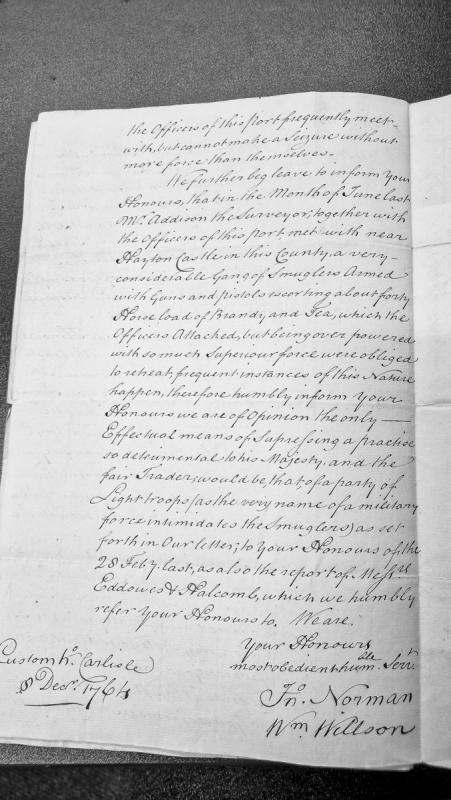 the Officers of this Port frequently meet
with, but cannot make a Seizure without
more force than themselves.
We further beg leave to inform Your
Honours, that in the Month of June last
Mr. Addison the Surveyor, together with
the Officers of this Port met with near
Hayton Castle in this County, a very
considerable Gang of Smuglers Armed
with Guns and pistols escorting about forty
Horse load of Brandy and Tea, which the
Officers Attached, but being over powered
with so much Superiour force were obliged
to retreat, frequent instances of this Nature
happen, therefore humbly inform Your
Honours we are of Opinion the only
Effectual means of Supressing a practise
so detrumental to his Majesty, and the
fair Trader, would be, that, of a party of
Light troops (as the very name of a military
force intimidates the Smuglers) as set
forth in Our letter, to Your Honours of the
28 Feby. last, as also the report of Messrs
Eddowes & Halcomb, which we humbly
refer Your Honours to. We are.
Your Honours
most obedient humble. Servt.
Custom ho. Carlisle
8 Decr. 1764
Jno. Norman
Wm. Willson